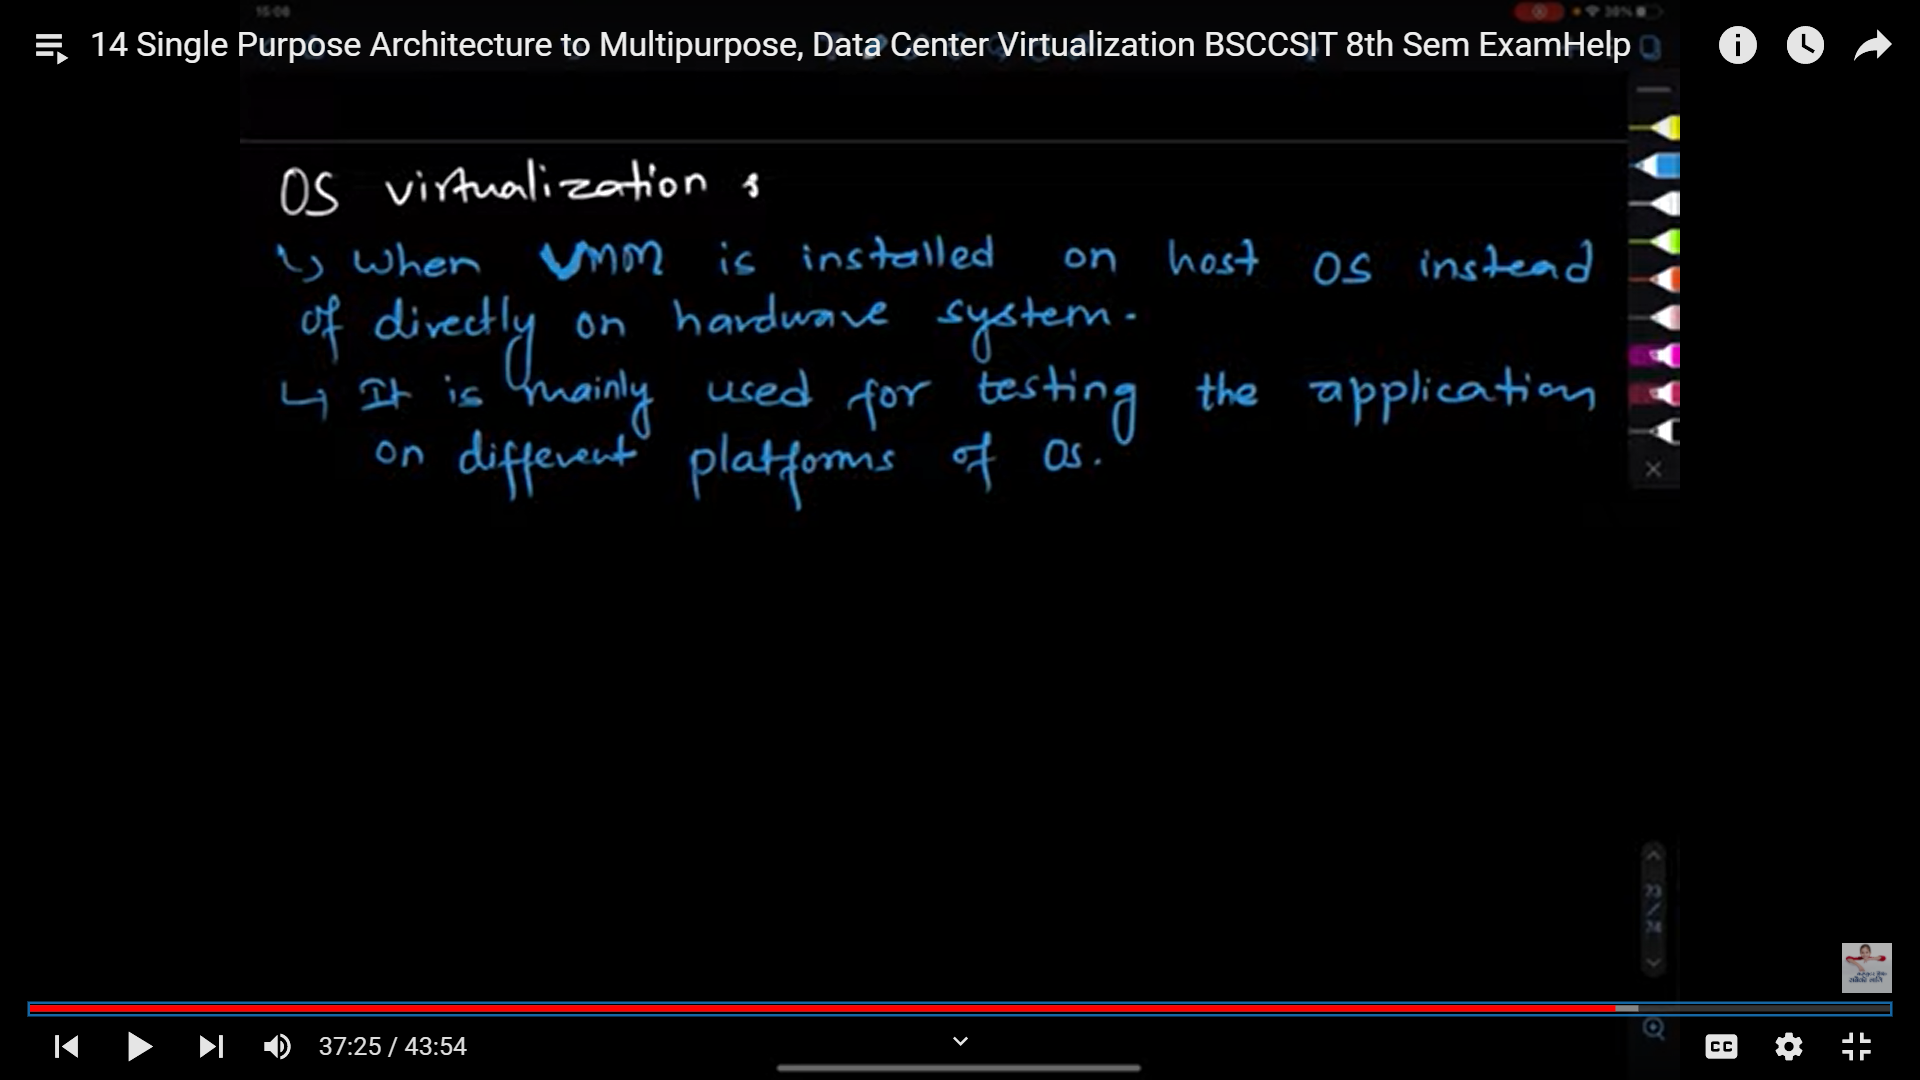 15:08
38%
14 Single Purpose Architecture to Multipurpose, Data Center Virtualization BSCCSIT 8th Sem ExamHelp
OS virtualization :
↳ When VMM is installed on host OS instead
of directly on hardware system.
↳ It is mainly used for testing the application
on different platforms of OS.
23
/
24
37:25 / 43:54
CC